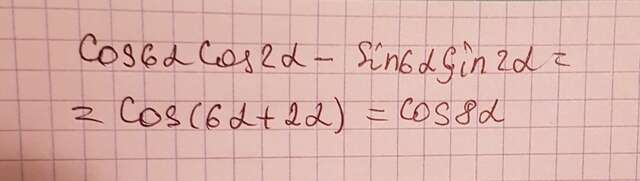 Cos6αCos2α - Sin6αSin2α =
= Cos(6α+2α) = cos8α